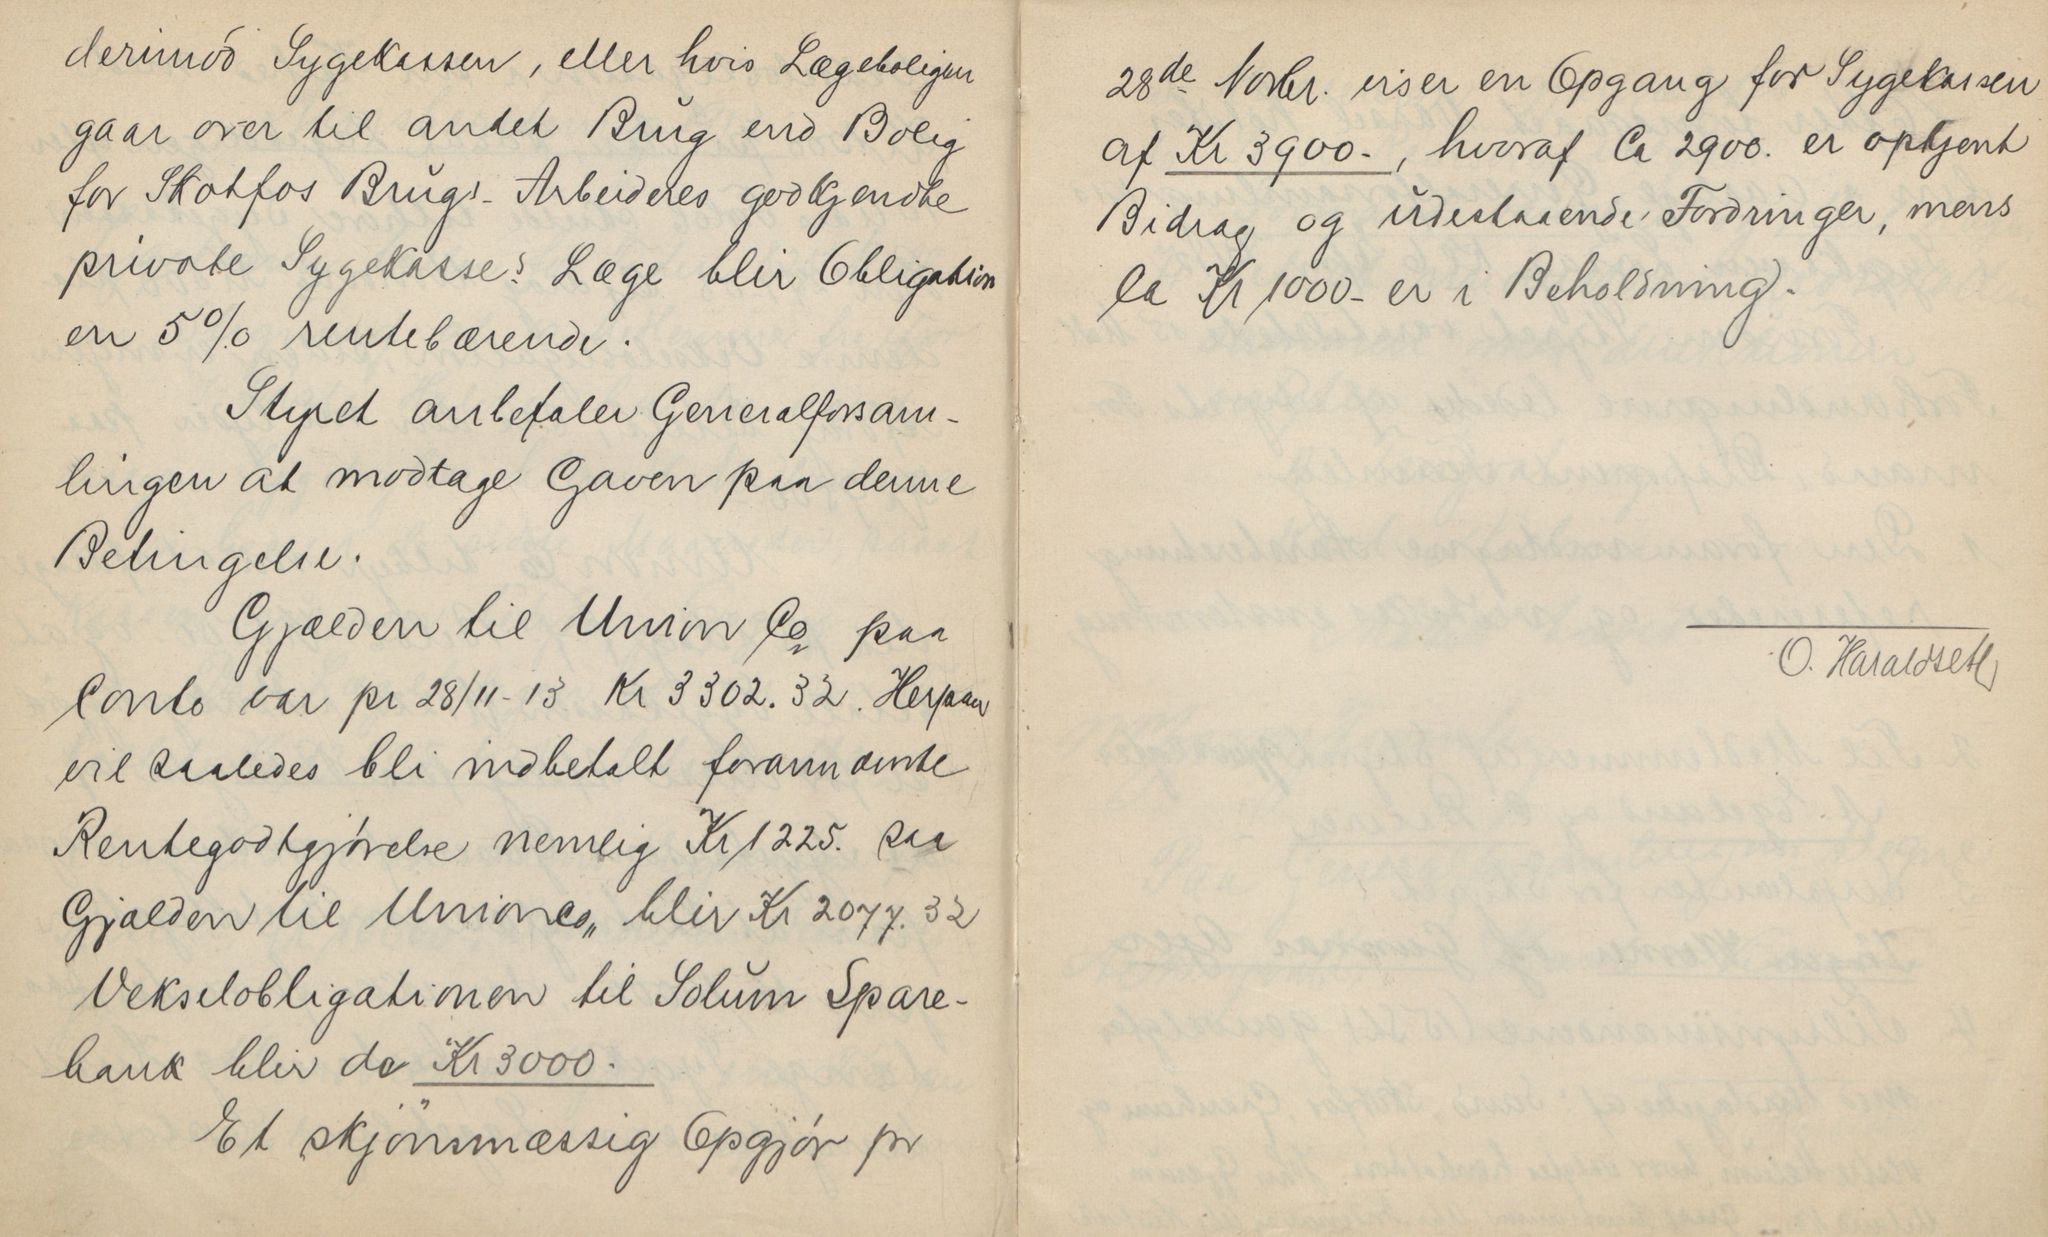 derimod Sygekassen, eller hvis Lægeboligen
gaar over til andet Brug end Bolig
for Skotfos Brugs-Arbeideres godkjendte
private Sygekasse's Læge blir Obligation
en 5% rentebærende.
Styret anbefaler Generalforsam-
lingen at modtage Gaven paa denne
Betingelse.
Gjælden til Union Co paa
Conto var pr 28/11-13 Kr 3302.32. Herpaa
vil saaledes bli indbetalt forannævnte
Rentegodtgjörelse nemlig Kr 1225. saa
Gjælden til Union Co„ blir Kr 2077.32
Vekselobligationen til Solum Spare-
bank blir da Kr 3000.-
Et skjönmæssig Opgjör pr
28de Novbr. viser en Opgang for Sygekassen
af Kr 3900.-, hvoraf Ca 2900. er optjent
Bidrag og udestaaende Fordringer, mens
Ca Kr 1000- er i Beholdning.
O. Haraldseth